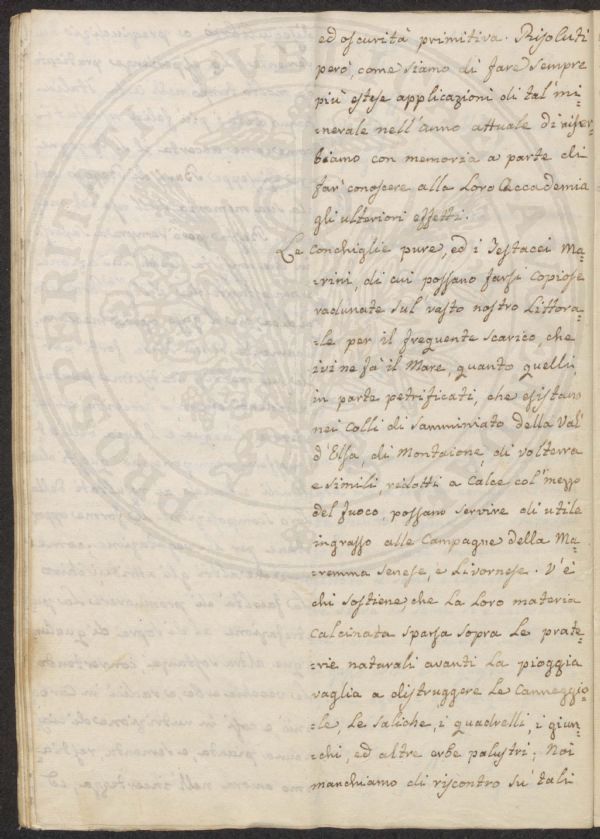 ed oscurità primitiva. Risoluti
però, come siamo di fare sempre
più estese applicazioni di tal' mi-
-nerale nell'anno attuale di riser-
biamo con memoria a parte di
far' conoscere alla Loro Accademia
gli ulteriori effetti.
Le Conchiglie pure, ed i Testacei Ma-
-rini, di cui possano farsi copiose
radunate sul' vasto nostro Littora-
-le per il frequente scarico, che
ivi ne fà il Mare, quanto quelli,
in parte petrificati, che esistano
nei Colli di Samminiato della Val'
d'Elsa, di Montaione, di Volterra
e simili, ridotti a Calce col' mezzo
del fuoco, possano servire di utile
ingrasso alle Campagne della Ma-
-remma Senese, e Livornese. V'è
chi sostiene, che la loro materia
Calcinata sparsa sopra le prate-
-rie naturali avanti la pioggia
vaglia a distruggere le Canneggio-
-le, le Saliche, i quadrelli, i giun-
-chi, ed altre erbe palustri; Noi
manchiamo di riscontro su' tali
PROSPERITATI